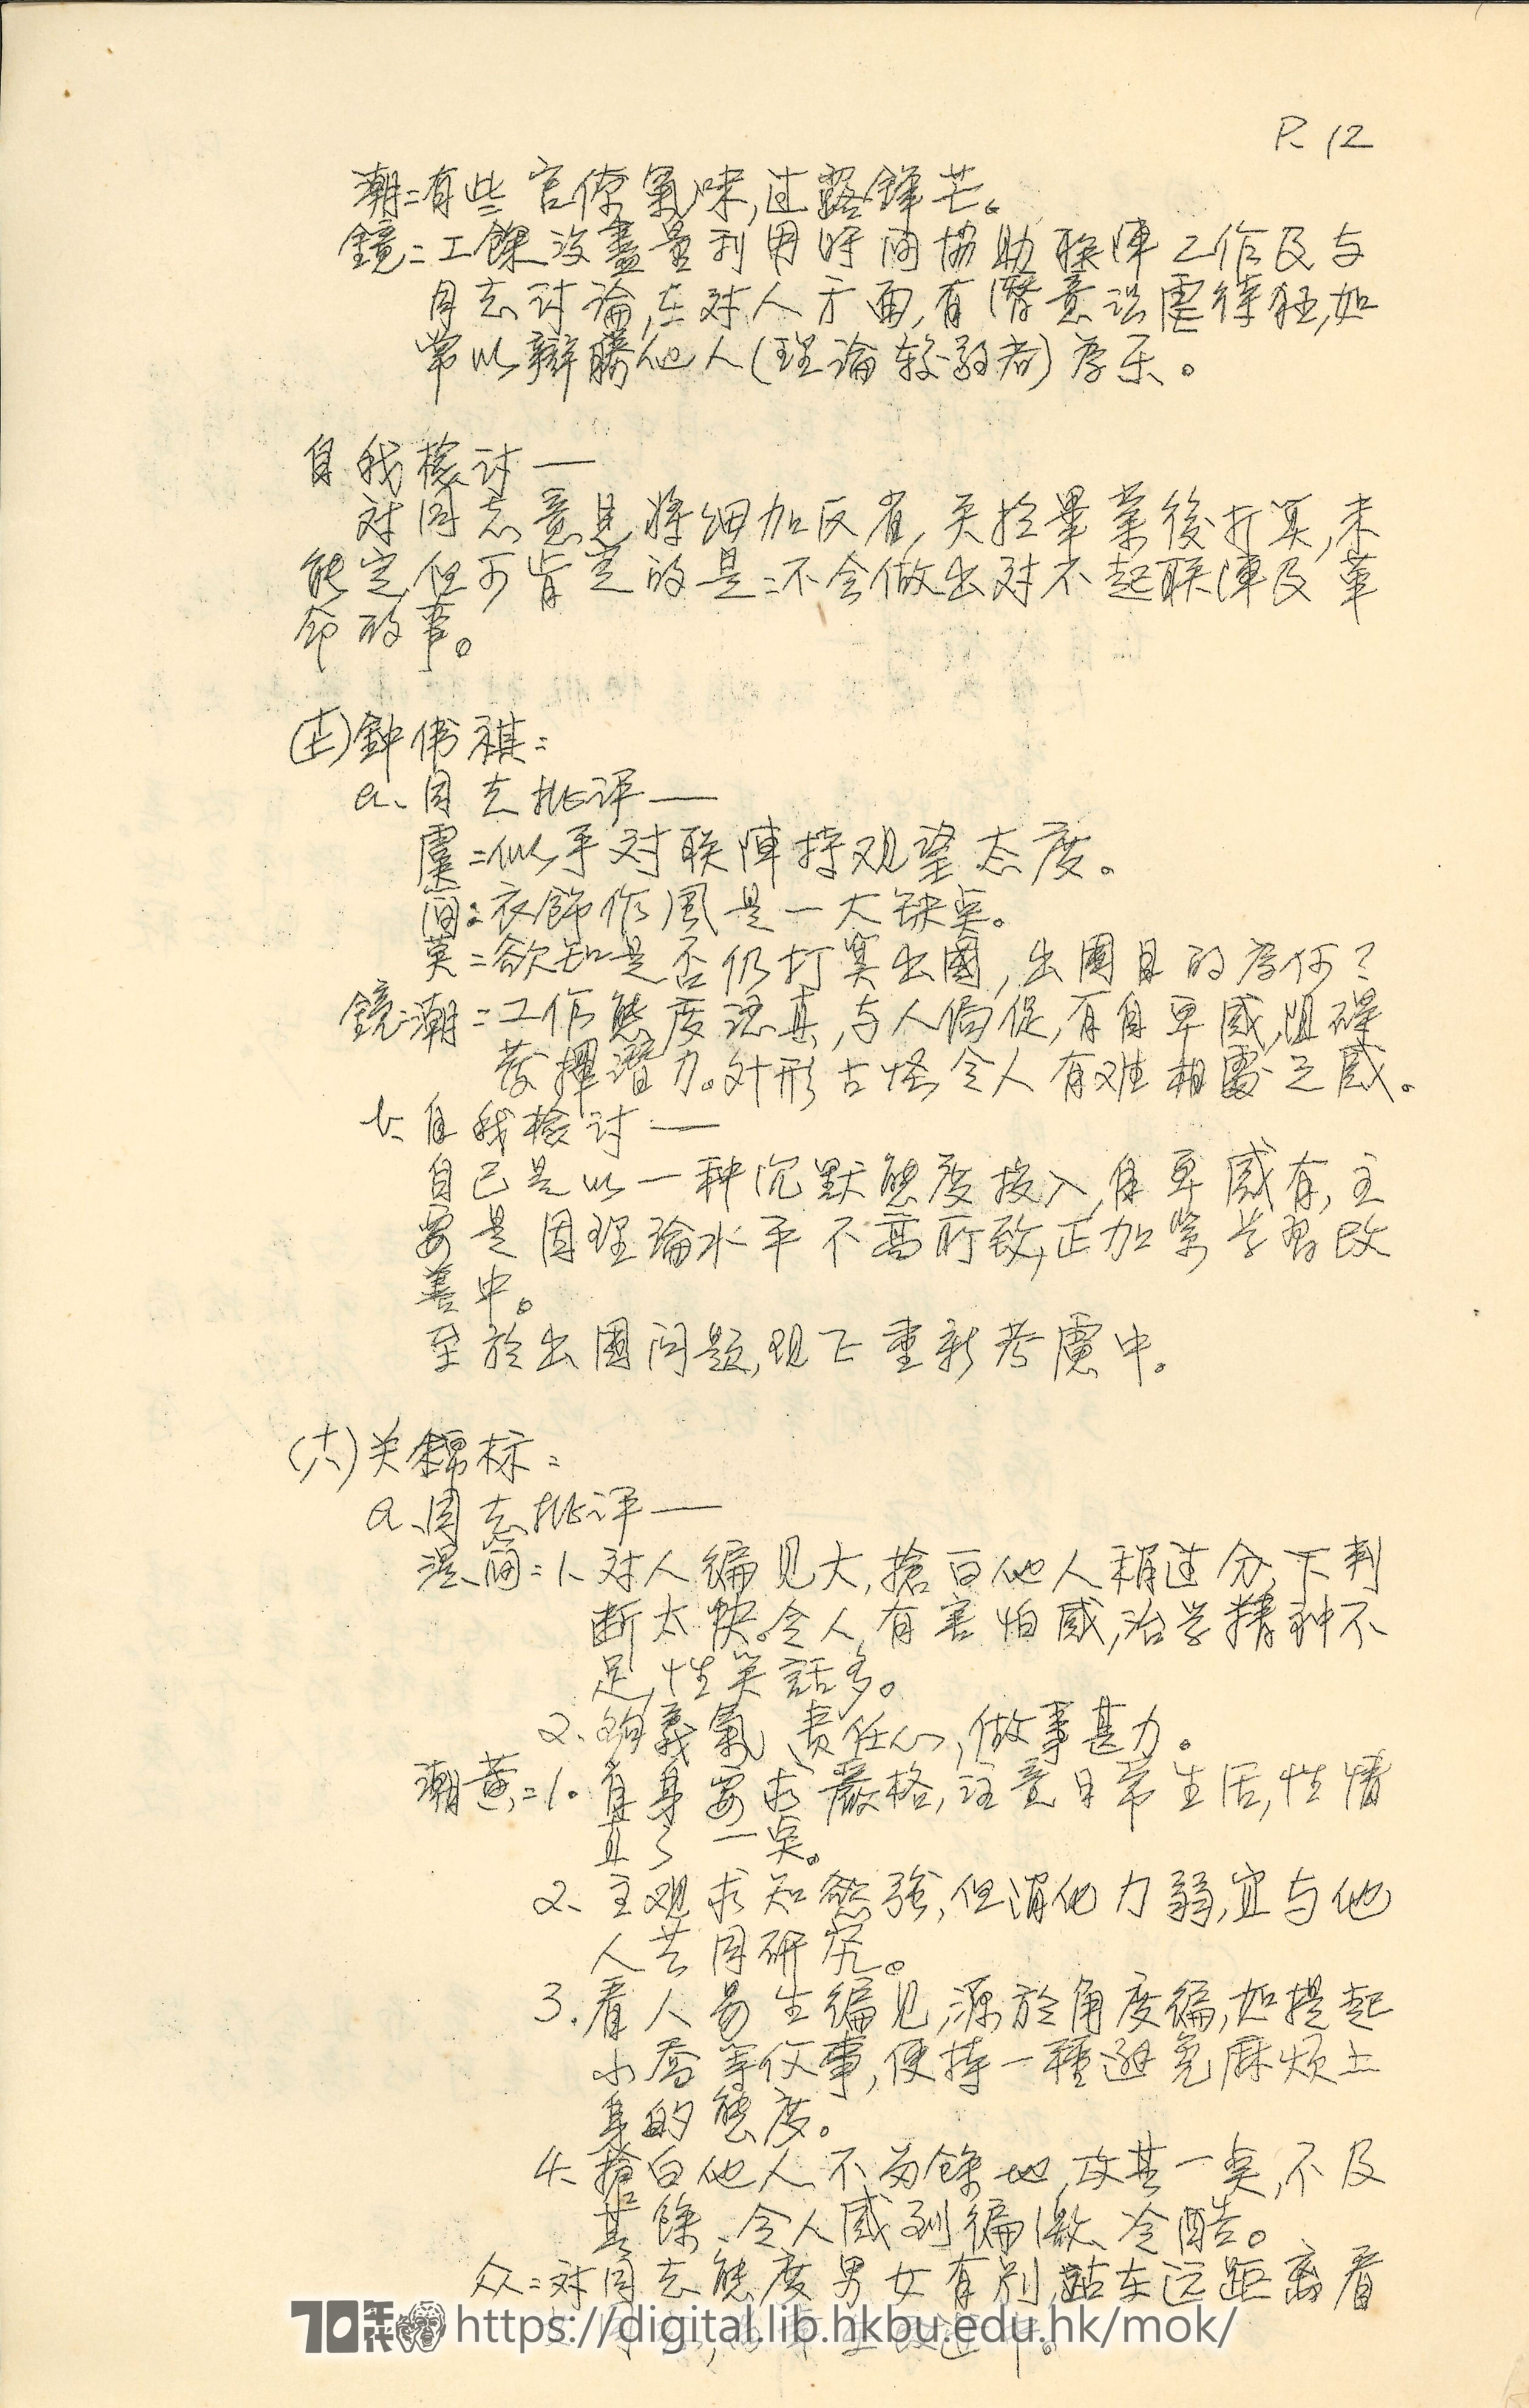 P. 12
潮:有些官僚氣味,过露鋒芒。
鏡:工餘没盡量利用时间協助联陣工作及与
同志讨論,在对人方面,有潛意识虐待狂,如
常以辯勝他人(理論較弱者)為乐。
自我檢讨——
对同志意見將细加反省,关於畢業後打算,未
能定,但可肯定的是:不会做出对不起联陣及革
命的事。
(十五)鍾伟祺:
a、同志批评——
虞:似乎对联陣持观望态度。
簡:衣飾作風是一大缺点。
英:欲知是否仍打算出國,出國目的為何?
鏡、潮:工作態度認真,与人侷促,有自卑感,阻碍
發揮潛力。外形古怪令人有难相處之感。
b、自我檢讨——
自己是以一种沉默態度投入,自卑感有,主
要是因理論水平不高所致,正加紧学習改
善中。
至於出國问题,现正重新考慮中。
(十六)关錦标:
a、同志批评——
湜、簡:1、对人偏见大,搶白他人稍过分,下判
断太快。令人有害怕感,治学精神不
足,性笑話多。
2、夠義氣、责任心,做事甚力。
潮、黄:1。自身要求嚴格,注意日常生活,性情
直了一点。
2、主观求知慾強,但消化力弱,宜与他
人共同研究。
3.看人易生偏见,源於角度偏,如提起
小喬等仪事,便持一種避免麻烦上
身的態度。
4、搶白他人不留餘地,攻其一点,不及
其餘、令人感到偏激、冷酷。
众:对同志態度男女有别,站在远距离看
70年代 https://digital.lib.hkbu.edu.hk/mok/